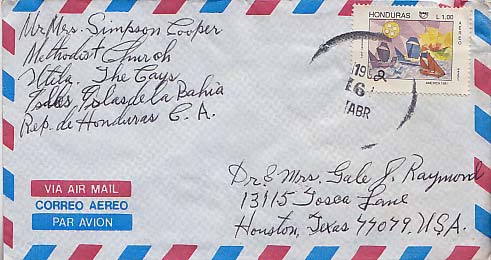 Mr. Mrs. Simpson Cooper
Methodist Church
Utila, The Cays
Islas de la Bahia
Rep. de Honduras C. A.
HONDURAS L 1.00
AEREO
AMERICA
6
ABR
VIA AIR MAIL
CORREO AEREO
PAR AVION
Dr. & Mrs. Gale J. Raymond
13115 Tosca Lane
Houston, Texas 77079, U.S.A.